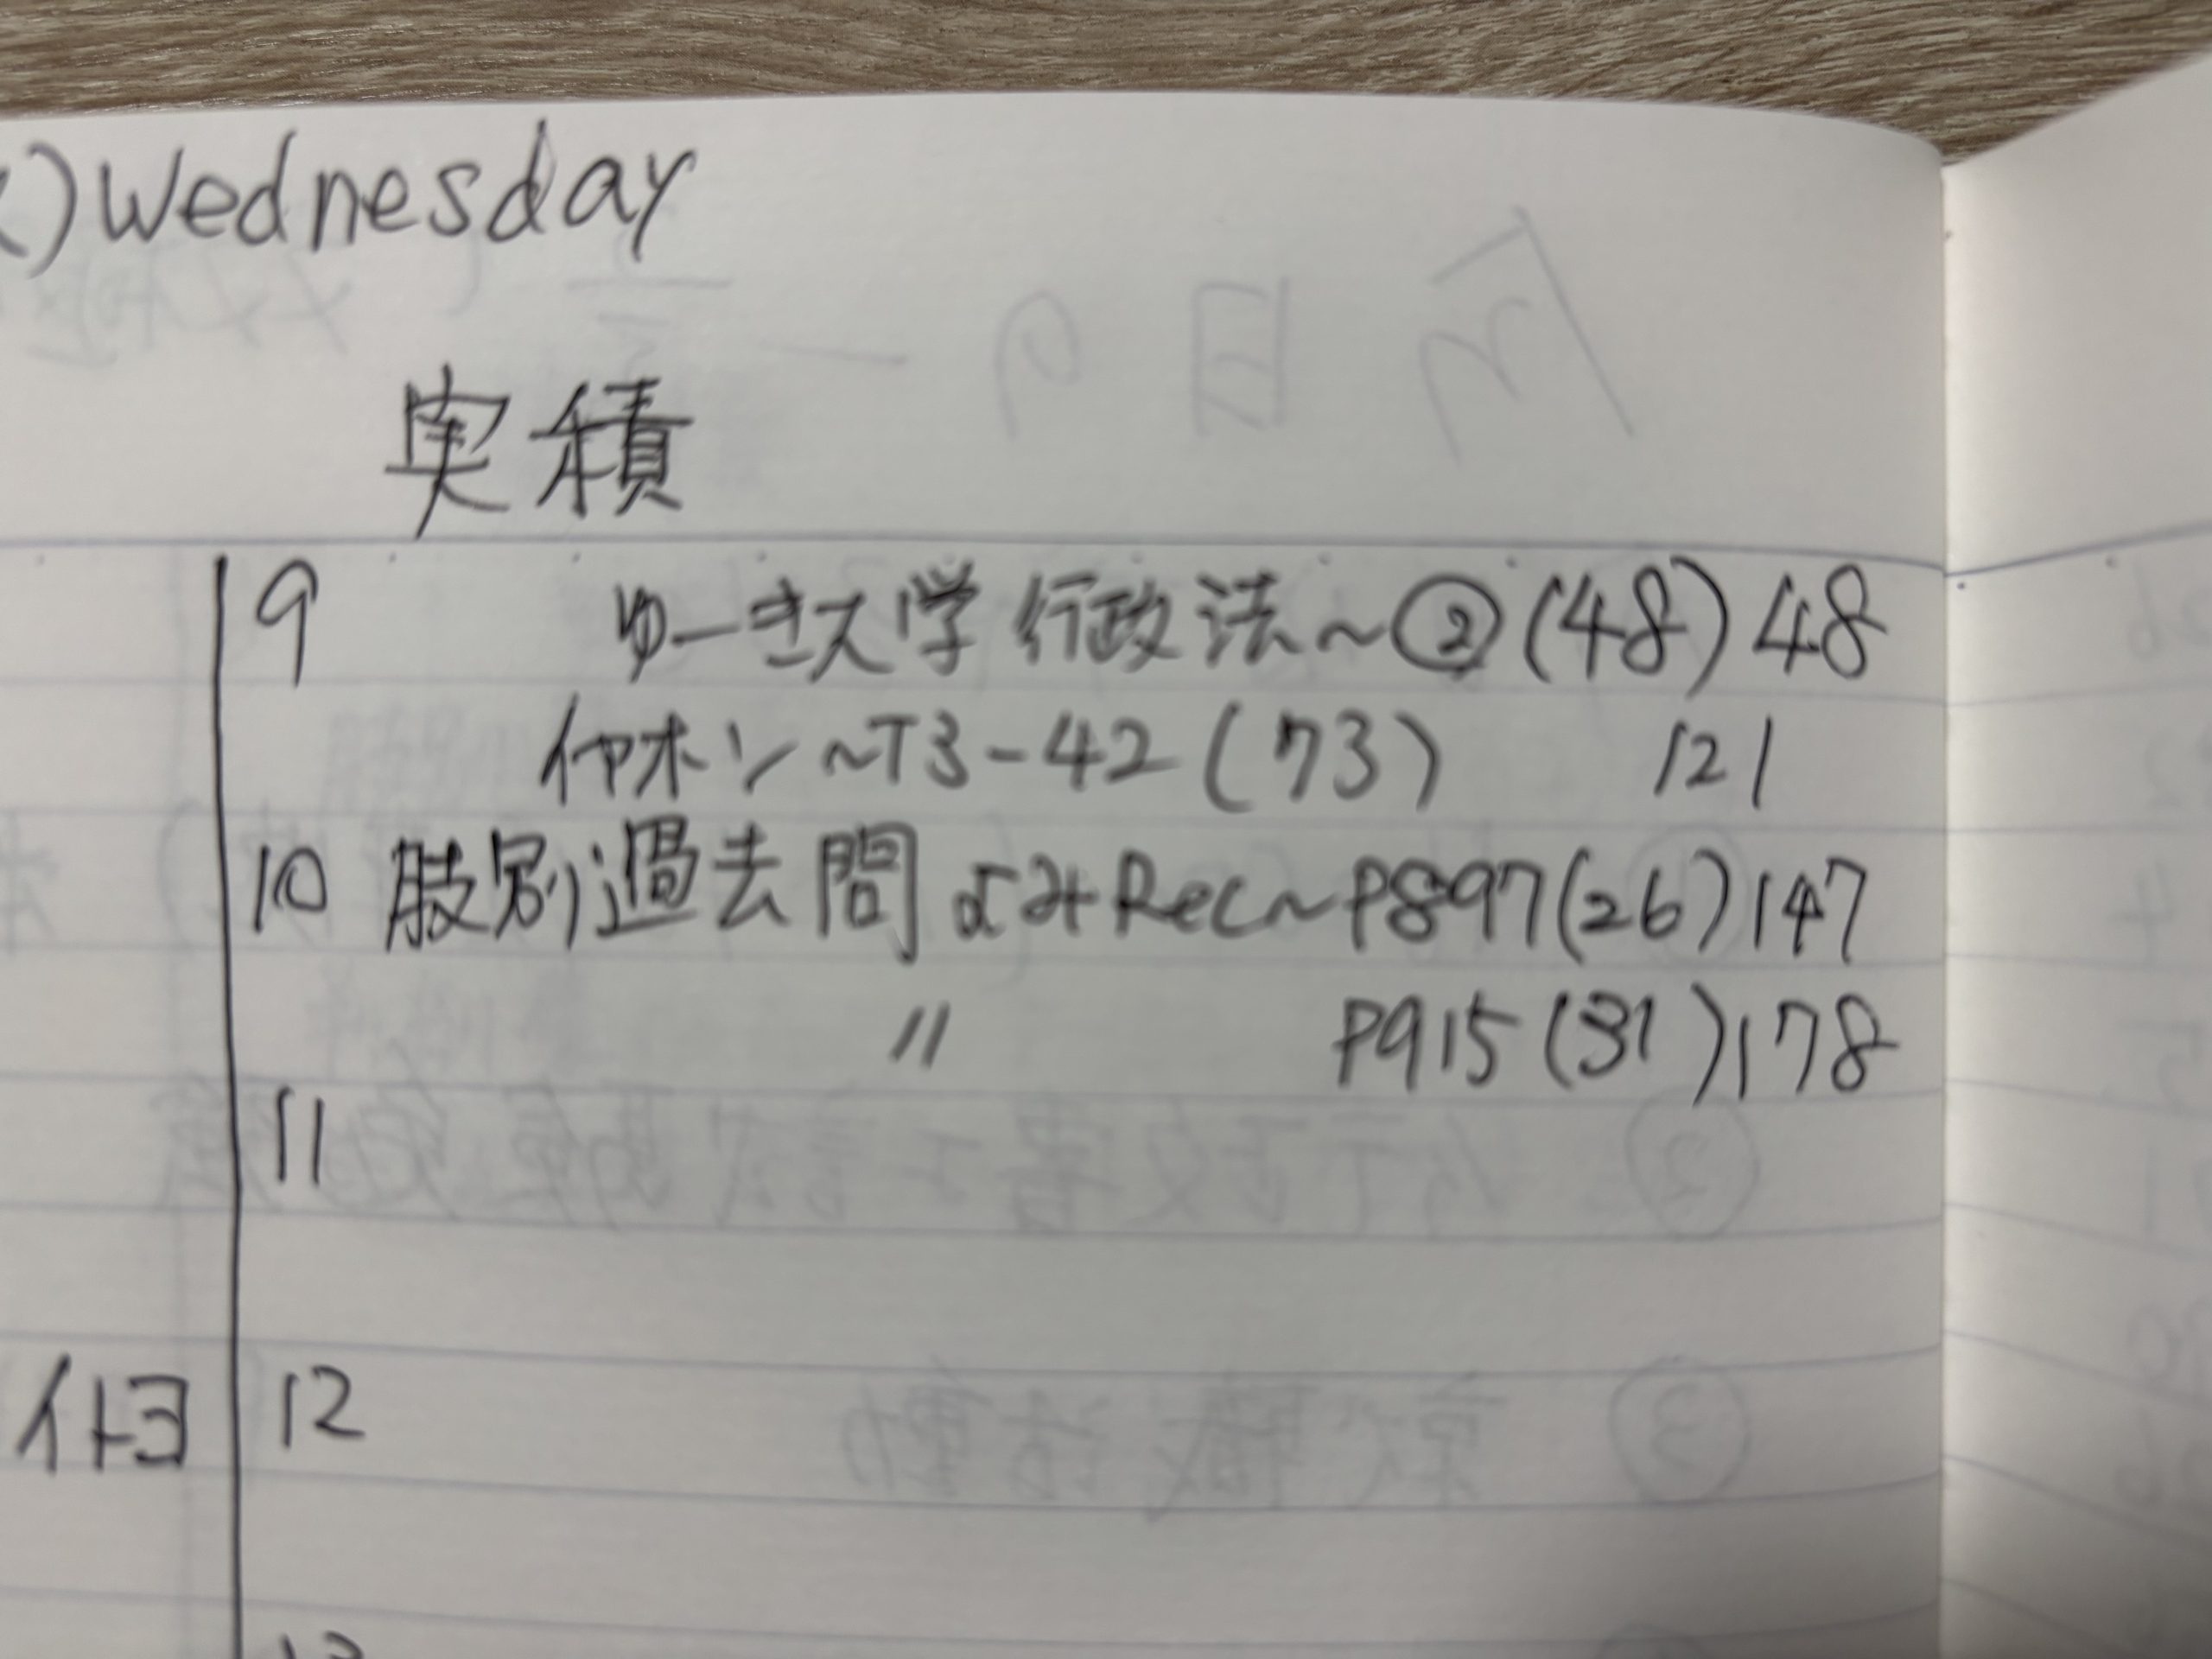 )Wednesday
実積
9 ゆーき大学 行政法~②(48)48
イヤホン~T3-42(73) 121
10 肢別過去問 よみRec~P897(26)147
〃 P915(31)178
11
12